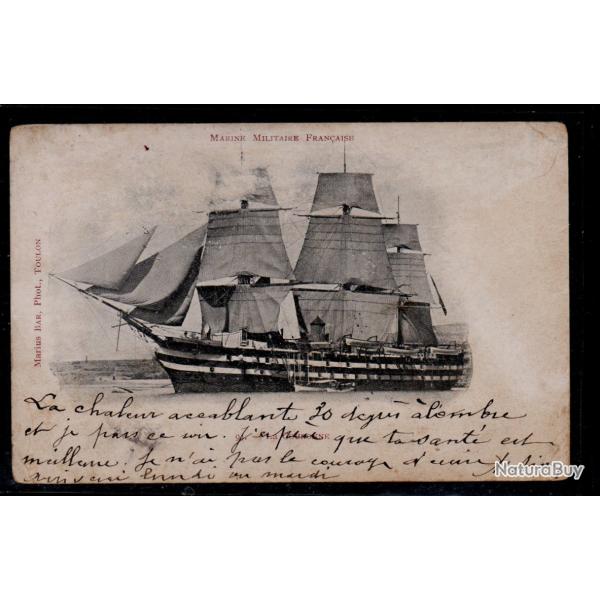 MARINE MILITAIRE FRANÇAISE
Marius BAR, Phot., TOULON
La chaleur accablante 30 degrés à l'ombre
et je pars ce soir. J'espère que ta santé est
meilleure. Je n'ai pas le courage d'écrire
lundi ou mardi
NaturaBuy